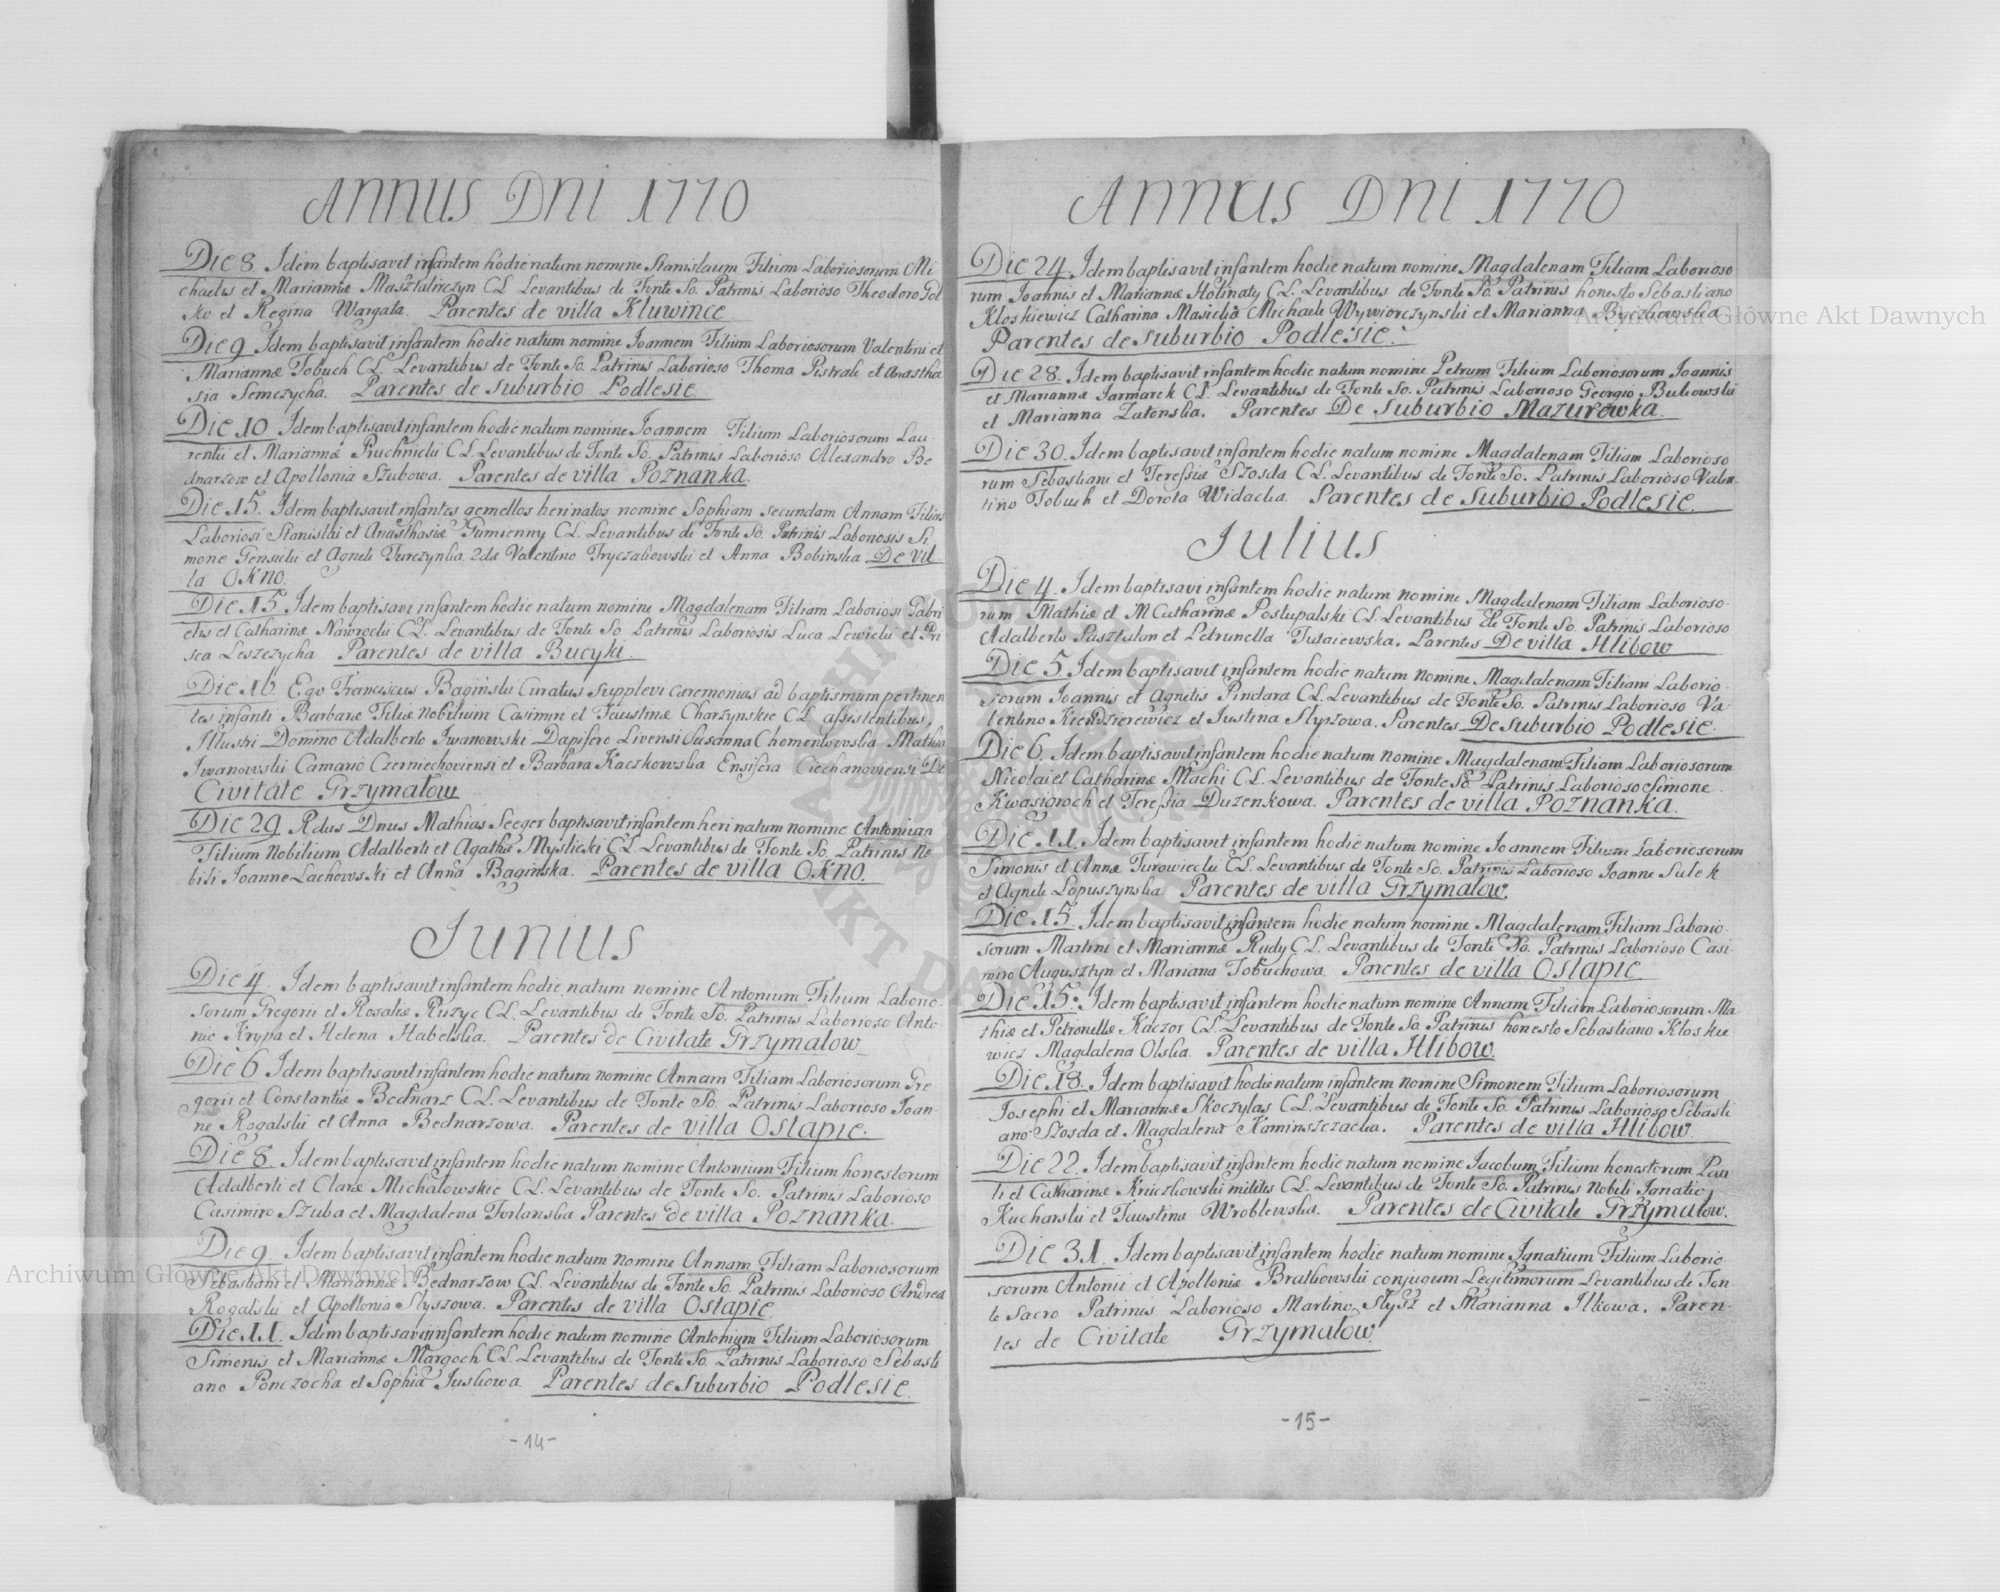 ANNUS DNI 1770
Die 8. Idem baptisavit infantem hodie natum nomine Stanislaum Filium Laboriosorum Mi
chaelis et Mariannæ Masztalirczyn CL Levantibus de Fonte So. Patrinis Laborioso Theodoro Gol
ko et Regina Wargata. Parentes de villa Kluwince
Die 9 Idem baptisavit infantem hodie natum nomine Joannem Filium Laboriosorum Valentini et
Mariannæ Tobuch CL. Levantibus de Fonte So. Patrinis Laborioso Thoma Pistrak et Anastha
sia Semczycha. Parentes de suburbio Podlesie.
Die 10. Idem baptisavit infantem hodie natum nomine Joannem Filium Laboriosorum Lau-
rentii et Mariannæ Pruchnicki CL. Levantibus de Fonte So. Patrinis Laborioso Alexandro Be
dnarzow et Apollonia Szubowa. Parentes de villa Poznanka.
Die 15. Idem baptisavit infantes gemellos heri natos nomine Sophiam secundam Annam Filias
Laboriosi Stanislai et Anasthasiæ Gumienny CL. Levantibus de Fonte So. Patrinis Laboriosis Si
mone Gensicki et Agnete Terczynka 2da Valentino Tryczakowski et Anna Bobinska De vil
la Okno.
Die 15. Idem baptisavi infantem hodie natum nomine Magdalenam Filiam Laboriosi Gabri
elis et Catharinæ Nawrocki CL. Levantibus de Fonte So Patrinis Laboriosis Luca Lewicki et Pri
sca Leszczycha Parentes de villa Bucyki.
Die 16. Ego Franciscus Baginski Curatus supplevi ceremonias ad baptismum pertinen
tes infanti Barbaræ Filiæ Nobilium Casimiri et Faustinæ Charzynskie CL assistentibus,
Illustri Domino Adalberto Iwanowski Dapifero Livensi Susanna Chomentowska Mathia
Iwanowski Camario Czerniechoviensi et Barbara Kaczkowska Ensifera Ciechanoviensi De
Civitate Grzymałow
Die 29. Rdus Dnus Mathias Seeger baptisavit infantem heri natum nomine Antonium
Filium Nobilium Adalberti et Agathæ Myslicki CL Levantibus de Fonte So. Patrinis No
bili Joanne Lachowski et Anna Baginska. Parentes de villa Okno.
Junius
Die 4. Idem baptisavit infantem hodie natum nomine Antonium Filium Laborio-
sorum Gregorii et Rosaliæ Ruzyc CL. Levantibus de Fonte So. Patrinis Laborioso Anto-
nio Krypa et Helena Habelska. Parentes de Civitate Grzymałow
Die 6 Idem baptisavit infantem hodie natum nomine Annam Filiam Laboriosorum Gre-
gorii et Constantiæ Bednarz CL. Levantibus de Fonte So. Patrinis Laborioso Joan-
ne Rogalski et Anna Bednarzowa. Parentes de villa Ostapie.
Die 8. Idem baptisavit infantem hodie natum nomine Antonium Filium honestorum
Adalberti et Claræ Michałowskie CL. Levantibus de Fonte So. Patrinis Laborioso
Casimiro Szuba et Magdalena Torlanska Parentes de villa Poznanka.
Die 9. Idem baptisavit infantem hodie natum nomine Annam Filiam Laboriosorum
Sebastiani et Mariannæ Bednarzow CL. Levantibus de Fonte So. Patrinis Laborioso Andrea
Rogalski et Apollonia Słyszowa. Parentes de villa Ostapie
Die 11. Idem baptisavit infantem hodie natum nomine Antonium Filium Laboriosorum
Simonis et Mariannæ Margoch CL. Levantibus de Fonte So. Patrinis Laborioso Sebasti
ano Ponczocha et Sophia Juskowa. Parentes de suburbio Podlesie.
-14-
ANNUS DNI 1770
Die 24. Idem baptisavit infantem hodie natum nomine Magdalenam Filiam Laborioso
rum Joannis et Mariannæ Holinaty CL. Levantibus de Fonte So. Patrinis honesto Sebastiano
Kloskiewicz Catharina Masicka Michaele Wywiorczynski et Marianna Byczkowska
Parentes de suburbio Podlesie.
Die 28. Idem baptisavit infantem hodie natum nomine Petrum Filium Laboriosorum Joannis
et Mariannæ Jarmarek CL. Levantibus de Fonte So. Patrinis Laborioso Georgio Bukowski
et Marianna Zatonska. Parentes De suburbio Mazurowka.
Die 30. Idem baptisavit infantem hodie natum nomine Magdalenam Filiam Laborioso
rum Sebastiani et Teressiæ Szosda CL. Levantibus de Fonte So. Patrinis Laborioso Valen-
tino Tobuch et Dorota Widacka. Parentes de suburbio Podlesie.
Julius
Die 4. Idem baptisavi infantem hodie natum nomine Magdalenam Filiam Laborioso-
rum Mathiæ et M Catharinæ Postupalski CL. Levantibus de Fonte So. Patrinis Laborioso
Adalberto Pasztalon et Petrunella Tusaiewska. Parentes De villa Hlibow
Die 5. Idem baptisavit infantem hodie natum nomine Magdalenam Filiam Laborio-
sorum Joannis et Agnetis Pindara CL. Levantibus de Fonte So. Patrinis Laborioso Va-
lentino Kiendzierewicz et Justina Słyszowa. Parentes De suburbio Podlesie.
Die 6. Idem baptisavit infantem hodie natum nomine Magdalenam Filiam Laboriosorum
Nicolai et Catharinæ Machi CL. Levantibus de Fonte So. Patrinis Laborioso Simone
Kwasigroch et Teressia Duzenkowa. Parentes de villa Poznanka.
Die 11. Idem baptisavit infantem hodie natum nomine Joannem Filium Laboriosorum
Simonis et Annæ Turowiecki CL. Levantibus de Fonte So. Patrinis Laborioso Joanne Sulek
et Agnete Lopuszynska Parentes de villa Grzymałow.
Die 15. Idem baptisavit infantem hodie natum nomine Magdalenam Filiam Laborio-
sorum Martini et Mariannæ Rudy CL. Levantibus de Fonte So. Patrinis Laborioso Casi-
miro Augusztyn et Mariana Tobuchowa. Parentes de villa Ostapie.
Die 15. Idem baptisavit infantem hodie natum nomine Annam Filiam Laboriosorum Ma
thiæ et Petronellæ Kaczor CL. Levantibus de Fonte So Patrinis honesto Sebastiano Kloskie
wicz Magdalena Olska. Parentes de villa Hlibow.
Die 18. Idem baptisavit hodie natum infantem nomine Simonem Filium Laboriosorum
Josephi et Mariannæ Skoczylas CL. Levantibus de Fonte So. Patrinis Laborioso Sebasti
ano Szosda et Magdalena Kaminszczacka. Parentes de villa Hlibow.
Die 22. Idem baptisavit infantem hodie natum nomine Jacobum Filium honestorum Pau
li et Catharinæ Kruczkowski militis CL. Levantibus de Fonte So. Patrinis Nobili Ignatio
Kucharski et Faustina Wroblewska. Parentes de Civitate Grzymałow.
Die 31. Idem baptisavit infantem hodie natum nomine Ignatium Filium Laborio
sorum Antonii et Apolloniæ Bratkowski conjugum Legitimorum Levantibus de Fon-
te Sacro Patrinis Laborioso Martino Słysz et Marianna Ilkowa. Paren-
tes de Civitate Grzymałow.
-15-
Archiwum Główne Akt Dawnych
Archiwum Główne Akt Dawnych